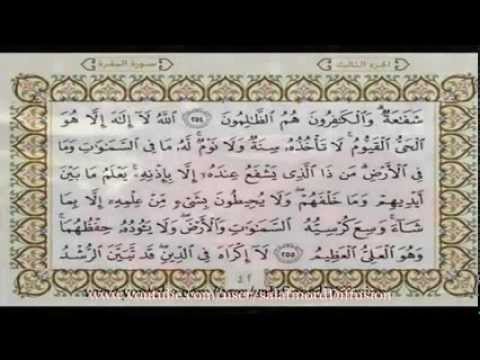 الجزء الثالث
سورة البقرة
شَفَٰعَةٌ ۗ وَالْكَٰفِرُونَ هُمُ الظَّٰلِمُونَ ٢٥٤ اللَّهُ لَآ إِلَٰهَ إِلَّا هُوَ
الْحَىُّ الْقَيُّومُ ۚ لَا تَأْخُذُهُۥ سِنَةٌ وَلَا نَوْمٌ ۚ لَّهُۥ مَا فِى السَّمَٰوَٰتِ وَمَا
فِى الْأَرْضِ ۗ مَن ذَا الَّذِى يَشْفَعُ عِندَهُۥٓ إِلَّا بِإِذْنِهِۦ ۚ يَعْلَمُ مَا بَيْنَ
أَيْدِيهِمْ وَمَا خَلْفَهُمْ ۖ وَلَا يُحِيطُونَ بِشَىْءٍ مِّنْ عِلْمِهِۦٓ إِلَّا بِمَا
شَآءَ ۚ وَسِعَ كُرْسِيُّهُ السَّمَٰوَٰتِ وَالْأَرْضَ ۖ وَلَا يَـُٔودُهُۥ حِفْظُهُمَا ۚ
وَهُوَ الْعَلِىُّ الْعَظِيمُ ٢٥٥ لَآ إِكْرَاهَ فِى الدِّينِ ۖ قَد تَّبَيَّنَ الرُّشْدُ
٤٢